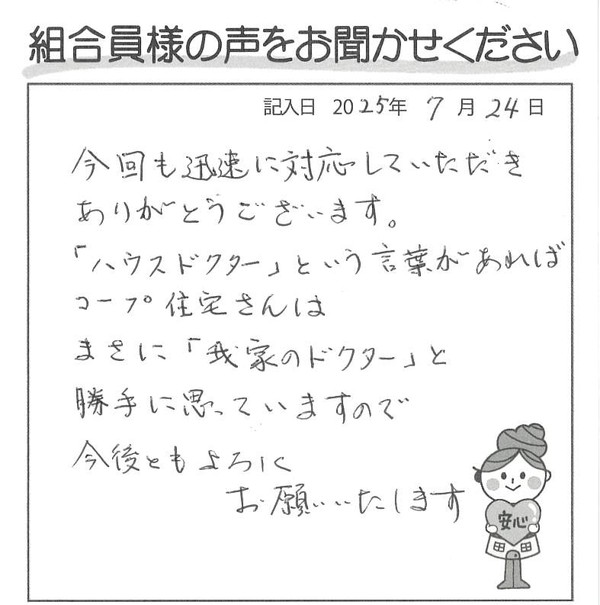 組合員様の声をお聞かせください
記入日 2025年 7月 24日
今回も迅速に対応していただき
ありがとうございます。
「ハウスドクター」という言葉があれば
コープ住宅さんは
まさに「我家のドクター」と
勝手に思っていますので
今後ともよろしく
お願いいたします
安心